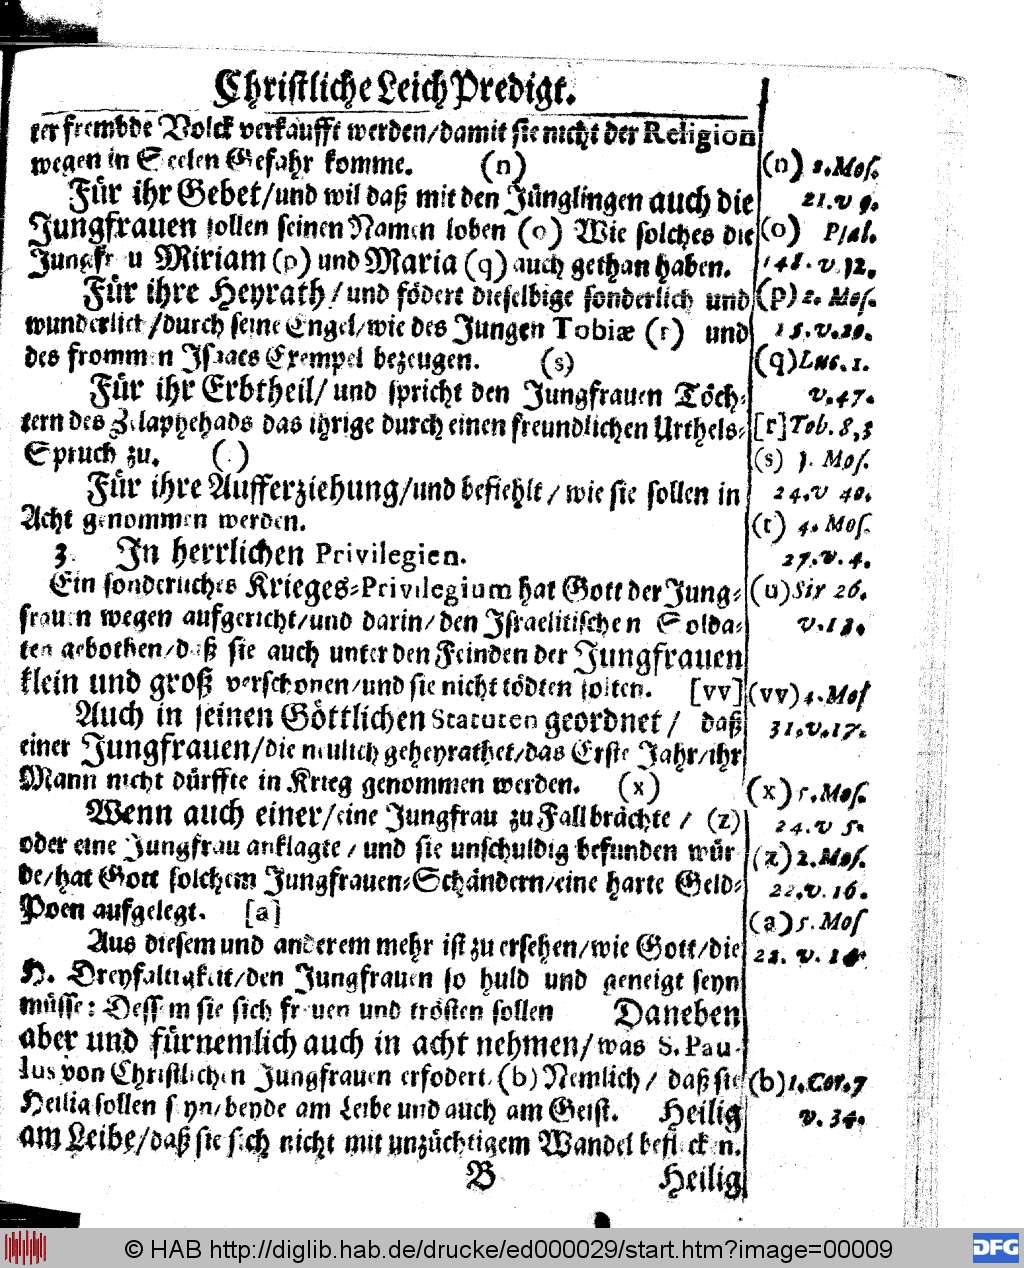 Christliche Leich Predigt.
ter frembde Volck verkaufft werden/damit sie nicht der Religion
wegen in Seelen Gefahr komme. (n)
Für ihr Gebet/und wil daß mit den Jünglingen auch die
Jungfrauen sollen seinen Namen loben (o) Wie solches die
Jungfrau Miriam (p) und Maria (q) auch gethan haben.
Für ihre Heyrath/und födert dieselbige sonderlich und
wunderlich/durch seine Engel/wie des Jungen Tobiæ (r) und
des frommen Isaacs Exempel bezeugen. (s)
Für ihr Erbtheil/und spricht den Jungfrauen Töch-
tern des Zelaphehads das ihrige durch einen freundlichen Urthels-
Spruch zu.
Für ihre Aufferziehung/und befiehlt/wie sie sollen in
Acht genommen werden.
3. In herrlichen Privilegien.
Ein sonderliches Krieges-Privilegium hat Gott der Jung-
frauen wegen aufgericht/und darin/den Israelitischen Solda-
ten gebothen/daß sie auch unter den Feinden der Jungfrauen
klein und groß verschonen/und sie nicht tödten solten. [vv]
Auch in seinen Göttlichen Statuten geordnet/ daß
einer Jungfrauen/die neulich geheyrathet/das Erste Jahr/ihr
Mann nicht dürffte in Krieg genommen werden. (x)
Wenn auch einer/eine Jungfrau zu Fall brächte/ (z)
oder eine Jungfrau anklagte/und sie unschuldig befunden wür
de/hat Gott solchem Jungfrauen-Schändern/eine harte Geld-
Poen aufgelegt. [a]
Aus diesem und anderem mehr ist zu ersehen/wie Gott/die
H. Dreyfaltigkeit/den Jungfrauen so huld und geneigt seyn
müsse: Dessem sie sich freuen und trösten sollen Daneben
aber und fürnemlich auch in acht nehmen/was S. Pau-
lus von Christlichen Jungfrauen erfodert. (b) Nemlich/ daß sie
Heilig sollen seyn/beyde am Leibe und auch am Geist. Heilig
am Leibe/daß sie sich nicht mit unzüchtigem Wandel beflecken.
B Heilig
(n) 2. Mos.
21. v 9.
(o) Psal.
148. v. 12.
(p) 2. Mos.
15. v. 20.
(q) Luc. 1.
v. 47.
[r] Tob. 8,3
(s) 1. Mos.
24. v 40.
(t) 4. Mos.
27. v. 4.
(u) Sir 26.
(vv) 4. Mos
31. v. 17.
(x) 5. Mos.
24. v 5.
(z) 2. Mos.
22. v. 16.
(a) 5. Mos
22. v.
(b) 1. Cor. 7
v. 34.
© HAB http://diglib.hab.de/drucke/ed000029/start.htm?image=00009
DFG